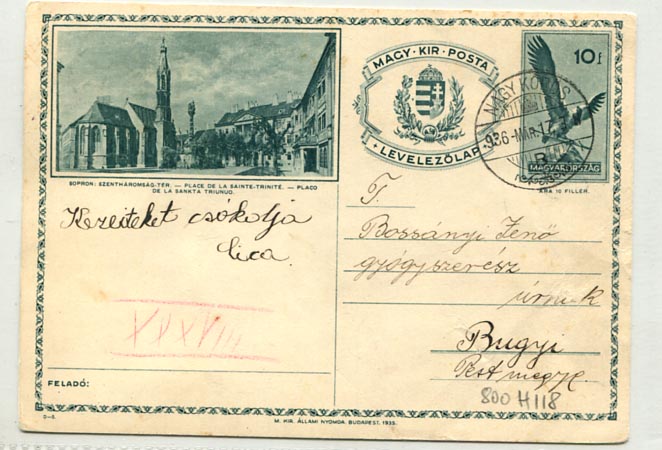 MAGY · KIR · POSTA
LEVELEZŐLAP
10 f
MAGYARORSZÁG
ÁRA 10 FILLÉR.
NAGYKŐRÖS
936
SOPRON: SZENTHÁROMSÁG-TÉR. — PLACE DE LA SAINTE-TRINITÉ. — PLACO
DE LA SANKTA TRIUNUO.
Kezeiteket csókolja
Lica.
XXXVIII
FELADÓ:
T.
Bossányi Jenő
gyógyszerész
úrnak
Bugyi
Pest megye.
800 H118
M. KIR. ÁLLAMI NYOMDA. BUDAPEST, 1935.